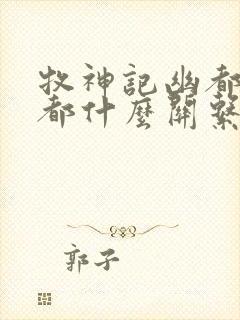 牧神記幽都
都什麼關繫
郭子